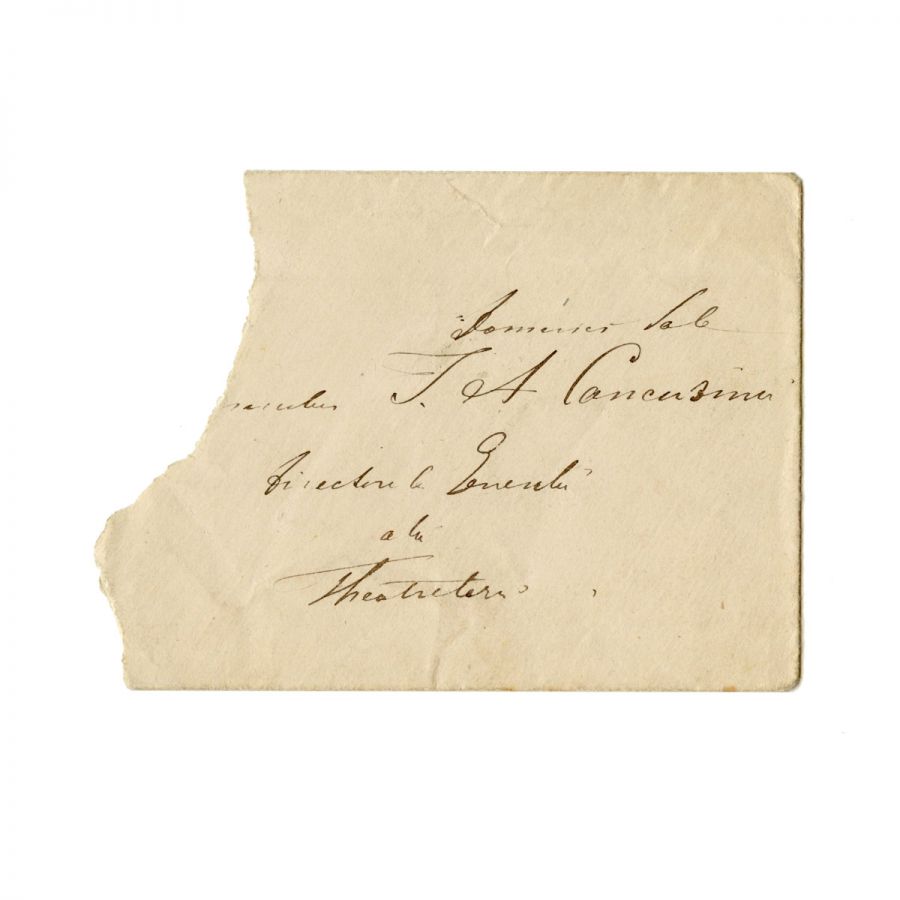 Domniei Sale
I. A Cancuzinu
Directorele Generalŭ
alŭ
Theatreloru